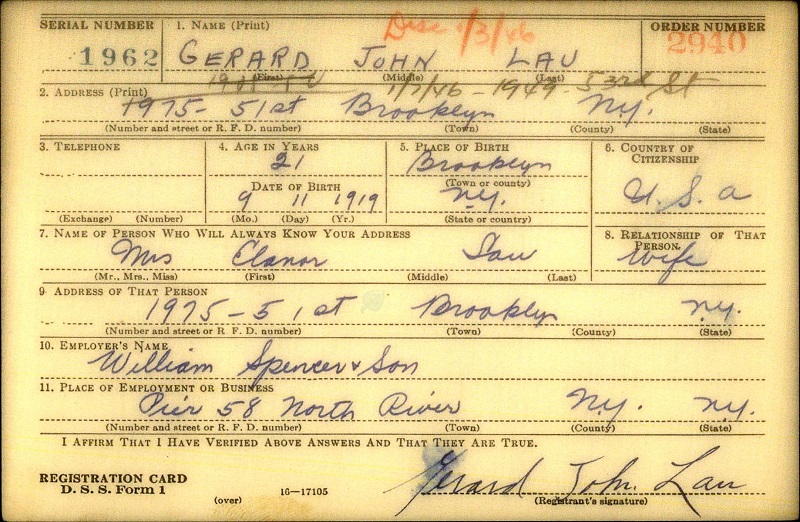 SERIAL NUMBER
1962
1. NAME (Print)
Disc 1/3/46
ORDER NUMBER
2940
GERARD JOHN LAU
(First) (Middle) (Last)
1/7/46 - 1949 - 53rd St
2. ADDRESS (Print)
1975- 51st Brooklyn N.Y.
(Number and street or R. F. D. number) (Town) (County) (State)
3. TELEPHONE
(Exchange) (Number)
4. AGE IN YEARS
21
DATE OF BIRTH
9 11 1919
(Mo.) (Day) (Yr.)
5. PLACE OF BIRTH
Brooklyn
(Town or county)
N.Y.
(State or country)
6. COUNTRY OF CITIZENSHIP
U. S. A
7. NAME OF PERSON WHO WILL ALWAYS KNOW YOUR ADDRESS
Mrs Elanor Lau
(Mr., Mrs., Miss) (First) (Middle) (Last)
8. RELATIONSHIP OF THAT PERSON
Wife
9. ADDRESS OF THAT PERSON
1975-51st Brooklyn N.Y.
(Number and street or R. F. D. number) (Town) (County) (State)
10. EMPLOYER'S NAME
William Spencer & Son
11. PLACE OF EMPLOYMENT OR BUSINESS
Pier 58 North River N.Y. N.Y.
(Number and street or R. F. D. number) (Town) (County) (State)
I AFFIRM THAT I HAVE VERIFIED ABOVE ANSWERS AND THAT THEY ARE TRUE.
REGISTRATION CARD
D. S. S. Form 1
(over)
16—17105
Gerard John Lau
(Registrant's signature)